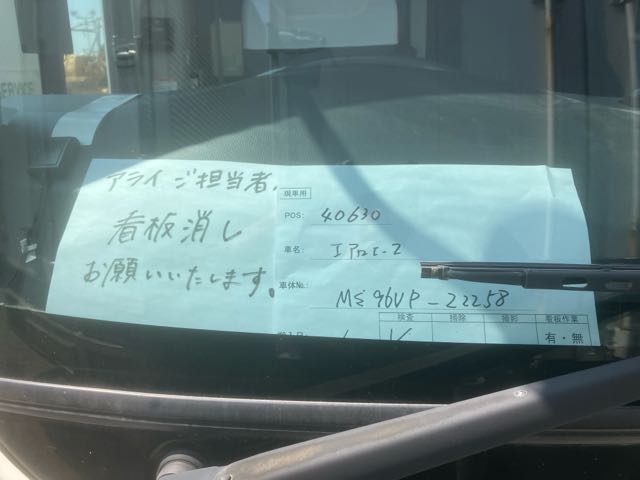 アライジ担当者、
看板消し
お願いいたします。
現車用
POS: 40630
車名: エアロエース
車体No.: MS96VP-22258
検査 掃除 撮影 看板作業
有・無
SERVICE